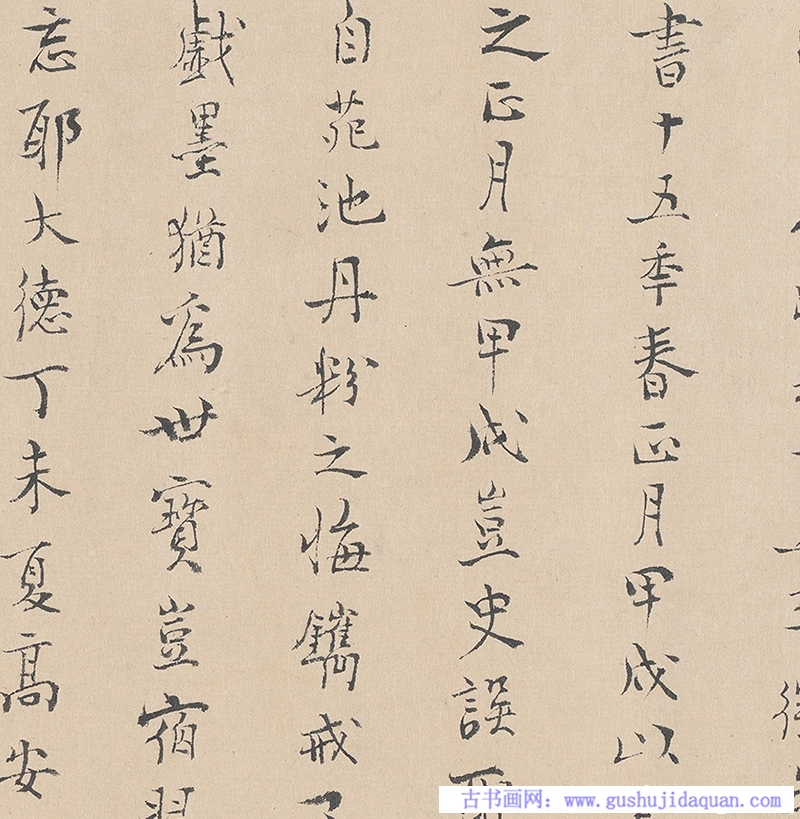 書十五年春正月甲戌以
之正月無甲戌豈史誤耶
自苑池丹粉之悔鐫戒
戲墨猶爲世寶豈宿習
忘耶大德丁未夏高安
古书画网：www.gushujidaquan.com